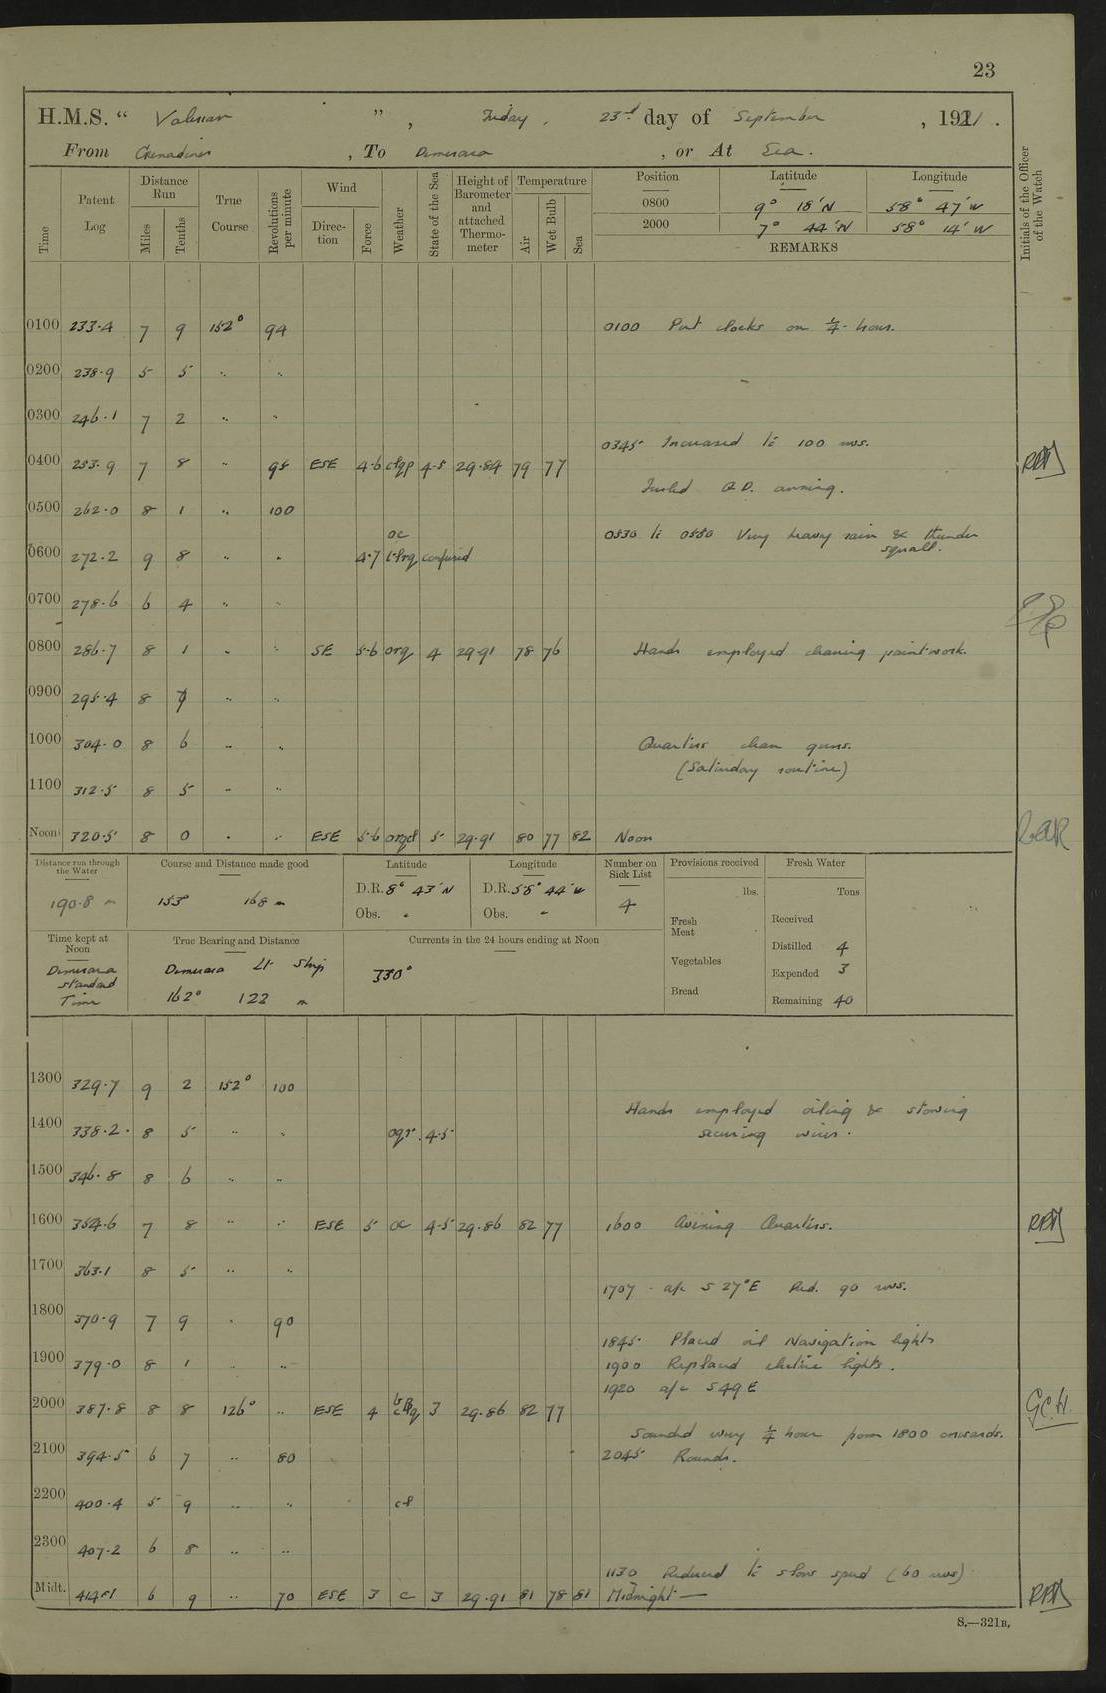 23
H.M.S. " Valerian " , Friday , 23rd day of September , 1921 .
From Grenadines , To Demerara , or At Sea .
Time
Patent Log
Distance Run
Miles
Tenths
True Course
Revolutions per minute
Wind
Direction
Force
Weather
State of the Sea
Height of Barometer and attached Thermometer
Temperature
Air
Wet Bulb
Sea
Position Latitude Longitude
0800 9° 18' N 58° 47' W
2000 7° 44' N 58° 14' W
REMARKS
Initials of the Officer of the Watch
0100 233·4 7 9 152° 94 0100 Put clocks on ¼ hour.
0200 238·9 5 5 " "
0300 246·1 7 2 " "
0345 Increased to 100 revs.
0400 253·9 7 8 " 95 ESE 4·6 4·5 29·84 79 77
Furled Q.D. awning.
0500 262·0 8 1 " 100
0530 to 0550 Very heavy rain & thunder squall.
0600 272·2 9 8 " " 4·7 oc confused
0700 278·6 6 4 " "
0800 286·7 8 1 " " SE 5·6 orq 4 29·91 78 76 Hands employed cleaning paintwork.
0900 295·4 8 7 " "
1000 304·0 8 6 " " Quarters clean guns.
(Saturday routine)
1100 312·5 8 5 " "
Noon 320·5 8 0 " " ESE 5·6 5 29·91 80 77 82 Noon
Distance run through the Water
190·8 m
Course and Distance made good
153° 168 m
Latitude
D.R. 8° 43' N
Obs. "
Longitude
D.R. 58° 44' W
Obs. "
Number on Sick List
4
Provisions received
lbs.
Fresh Meat
Vegetables
Bread
Fresh Water
Tons
Received
Distilled 4
Expended 3
Remaining 40
Time kept at Noon
Demerara Standard Time
True Bearing and Distance
Demerara Lt Ship
162° 122 m
Currents in the 24 hours ending at Noon
330°
1300 329·7 9 2 152° 100
Hands employed oiling & stowing
1400 338·2 8 5 " " oqr 4·5 securing wires.
1500 346·8 8 6 " "
1600 354·6 7 8 " " ESE 5 oc 4·5 29·86 82 77 1600 Evening Quarters.
1700 363·1 8 5 " "
1707 a/c S 27° E Red. 90 revs.
1800 370·9 7 9 " 90
1845 Placed oil Navigation lights
1900 379·0 8 1 " " 1900 Replaced electric lights.
1920 a/c S 49 E
2000 387·8 8 8 126° " ESE 4 3 29·86 82 77 G.C.H.
Sounded every ¼ hour from 1800 onwards.
2100 394·5 6 7 " 80 2045 Rounds.
2200 400·4 5 9 " "
2300 407·2 6 8 " "
1130 Reduced to slow speed (60 revs)
Midt. 414·1 6 9 " 70 ESE 3 c 3 29·91 81 78 81 Midnight —
S.—321B.